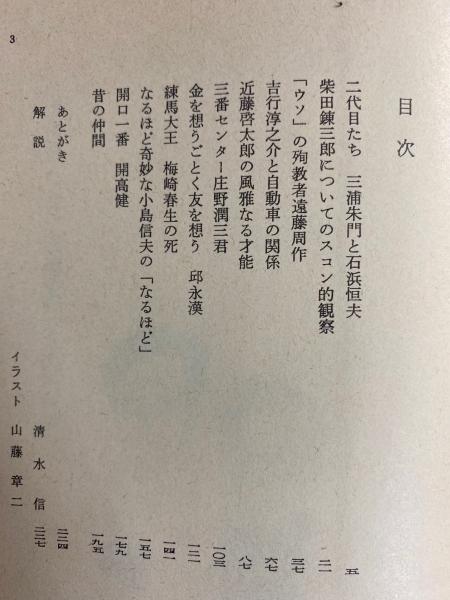 目次
二代目たち 三浦朱門と石浜恒夫 五
柴田錬三郎についてのスコン的観察 二一
「ウソ」の殉教者遠藤周作 三七
吉行淳之介と自動車の関係 六七
近藤啓太郎の風雅なる才能 八七
三番センター庄野潤三君 一〇三
金を想うごとく友を想う 邱永漢 一二一
練馬大王 梅崎春生の死 一四一
なるほど奇妙な小島信夫の「なるほど」 一五七
開口一番 開高健 一七九
昔の仲間 一九五
あとがき 二三四
解説 清水信 二三七
イラスト 山藤章二
3